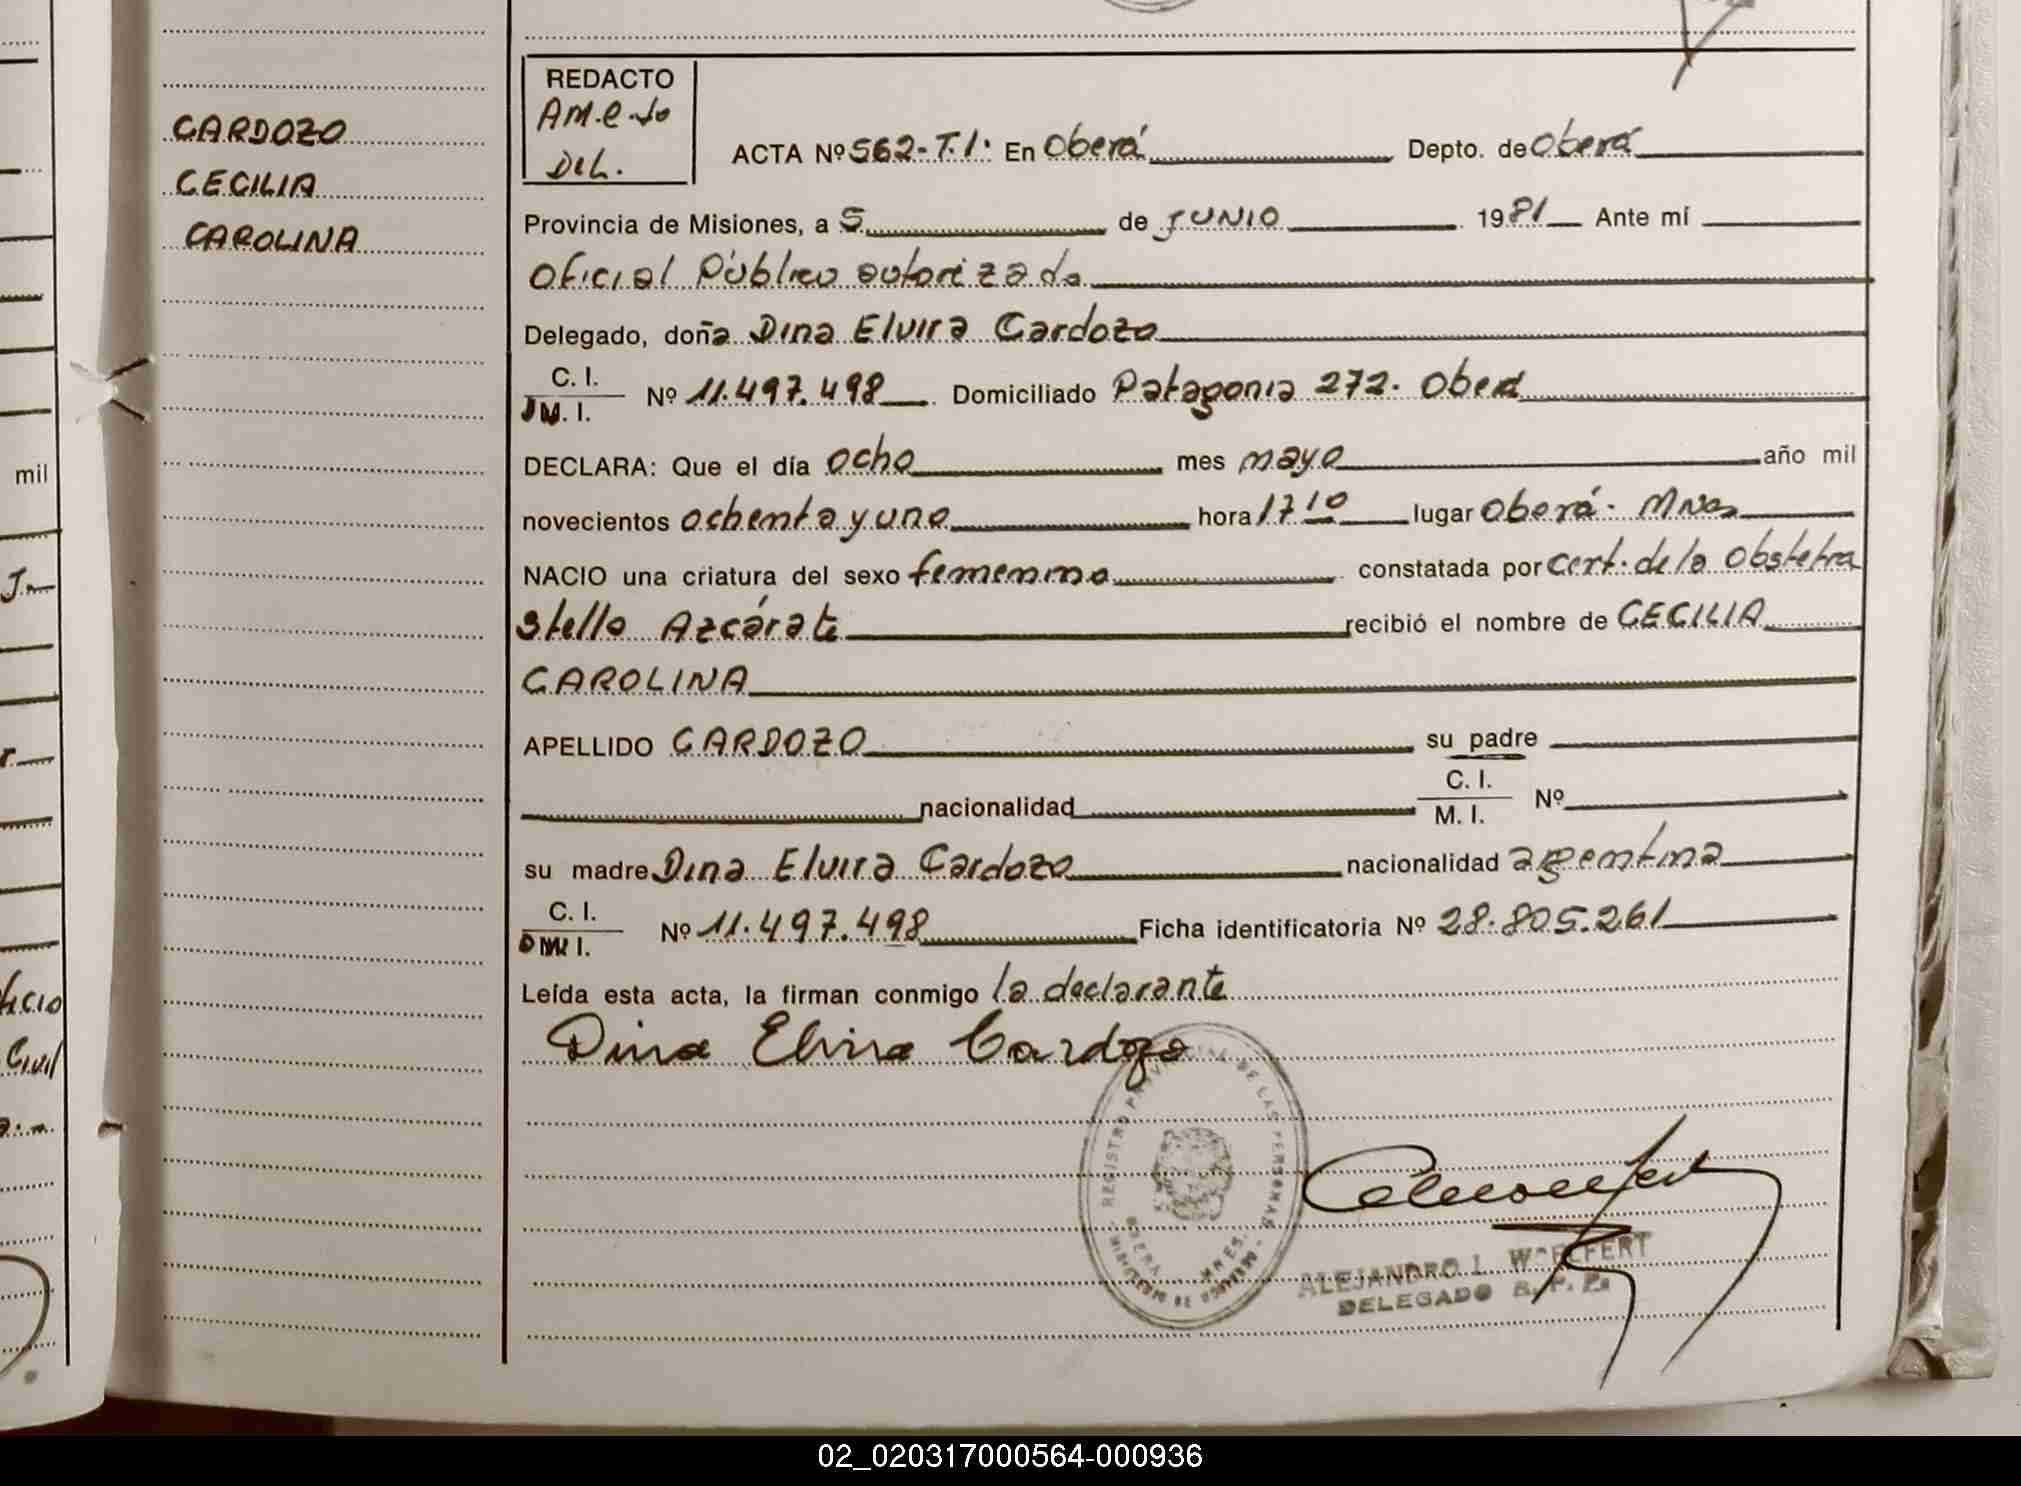 CARDOZO
CECILIA
CAROLINA
REDACTO
DEL.
ACTA Nº 562-T.I. En Oberá Depto. de Oberá
Provincia de Misiones, a 5 de JUNIO 1981 Ante mí
Oficial Público autorizado
Delegado, doña Dina Elvira Cardozo
C. I.
M. I.
Nº 11.497.498 Domiciliado Patagonia 272. Oberá
DECLARA: Que el día ocho mes mayo año mil
novecientos ochenta y uno hora 17 10 lugar Oberá. Mnes
NACIO una criatura del sexo femenino constatada por Cert. de la Obstetra
Stella Azcárate recibió el nombre de CECILIA
CAROLINA
APELLIDO CARDOZO su padre
nacionalidad C. I.
M. I.
Nº
su madre Dina Elvira Cardozo nacionalidad argentina
C. I.
D M. I.
Nº 11.497.498 Ficha identificatoria Nº 28.805.261
Leída esta acta, la firman conmigo la declarante
Dina Elvira Cardozo
REGISTRO PROVINCIAL DE LAS PERSONAS
MNES.
ALEJANDRO I. WOELFERT
DELEGADO R. P. P.
mil
Civil
02_020317000564-000936